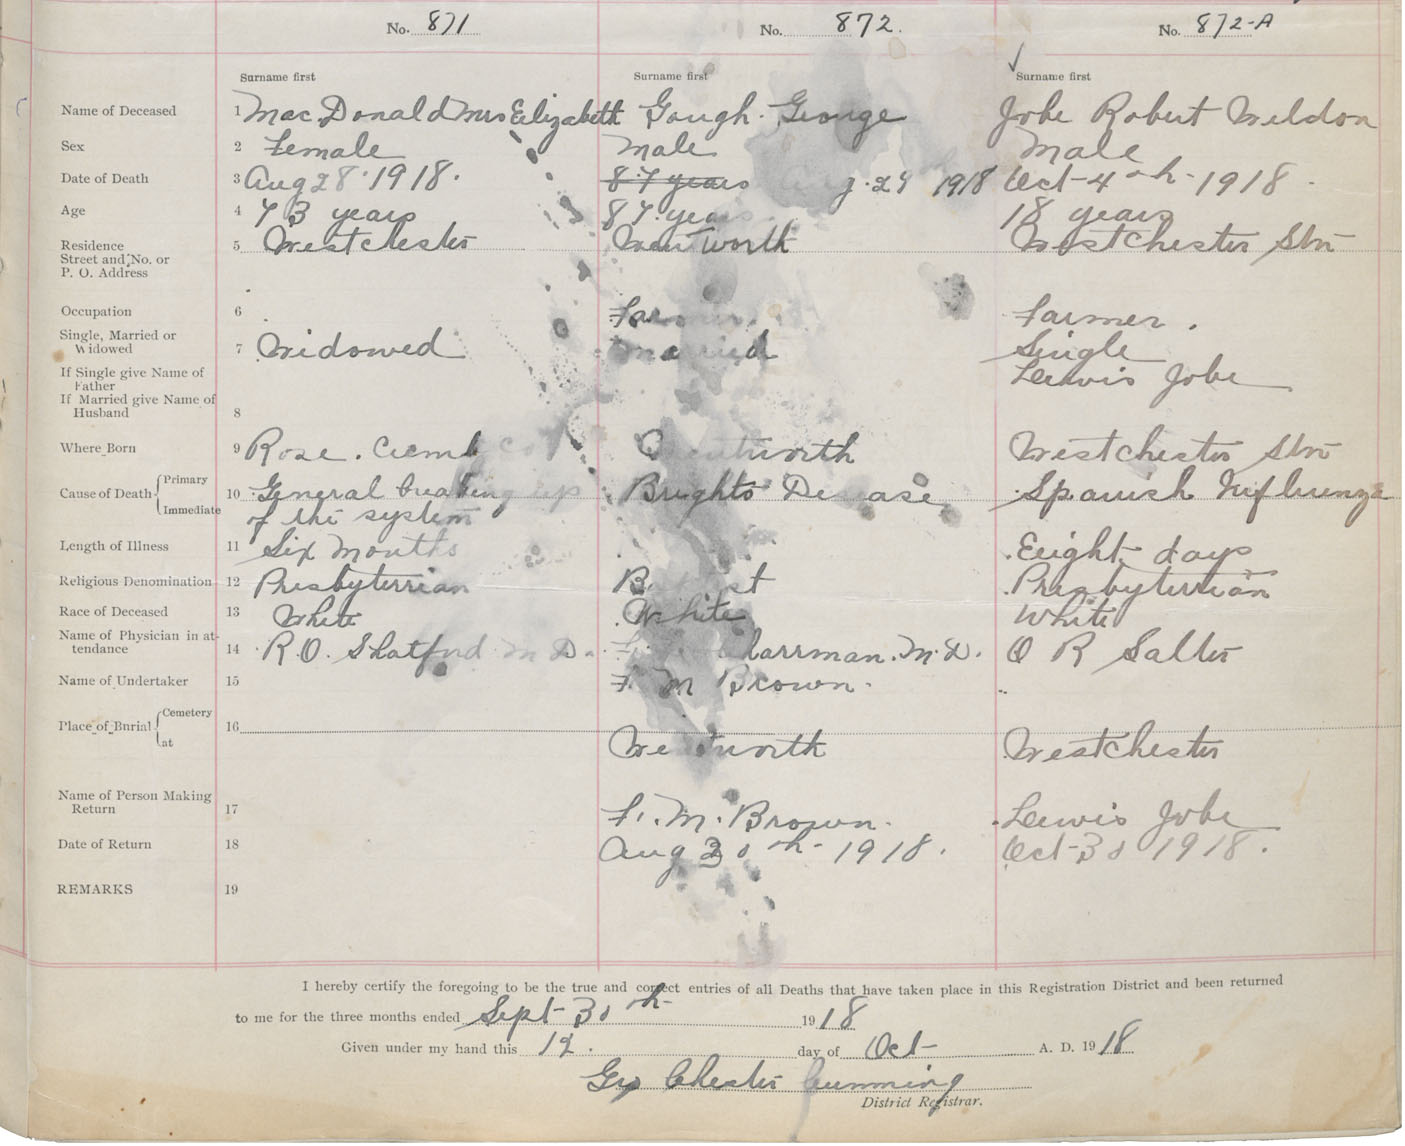 No. 871 No. 872. No. 872-A
Surname first Surname first Surname first
Name of Deceased 1 MacDonald Mrs Eilizabeth Gough. George Jobe Robert Weldon
Sex 2 Female Male Male
Date of Death 3 Aug 28. 1918. 87 years Aug. 29 1918 Oct 4th 1918
Age 4 73 years 87. years 18 years
Residence 5 Westchester Wentworth Westchester Stn
Street and No. or
P. O. Address
Occupation 6 Farmer. Farmer.
Single, Married or
Widowed 7 Widowed Married Single
If Single give Name of Lewis Jobe
Father
If Married give Name of
Husband 8
Where Born 9 Rose. Wentworth Westchester Stn
Cause of Death Primary
10 General breaking up Brights Desease Spanish Influenza
Immediate of the system
Length of Illness 11 Six Months Eeight days
Religious Denomination 12 Presbyterrian Baptist Presbyterrian
Race of Deceased 13 White White White
Name of Physician in at-
tendance 14 R.O. Shatford M.D. M.D. O R Salter
Name of Undertaker 15 F. M Brown.
Place of Burial Cemetery
16
at Wentworth Westchester
Name of Person Making
Return 17 F. M. Brown. Lewis Jobe
Date of Return 18 Aug 30th 1918. Oct 30 1918.
REMARKS 19
I hereby certify the foregoing to be the true and correct entries of all Deaths that have taken place in this Registration District and been returned
to me for the three months ended Sept 30th 1918
Given under my hand this 12. day of Oct A. D. 1918
Chester Cumming
District Registrar.